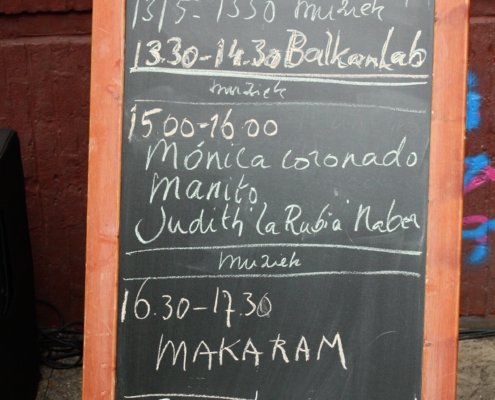 1315-1330 muziek
13.30-14.30 Balkanlab
muziek
15.00-16.00
Mónica coronado
Manito,
Judith 'la Rubia' Naber
muziek
16.30-17.30
MAKARAM